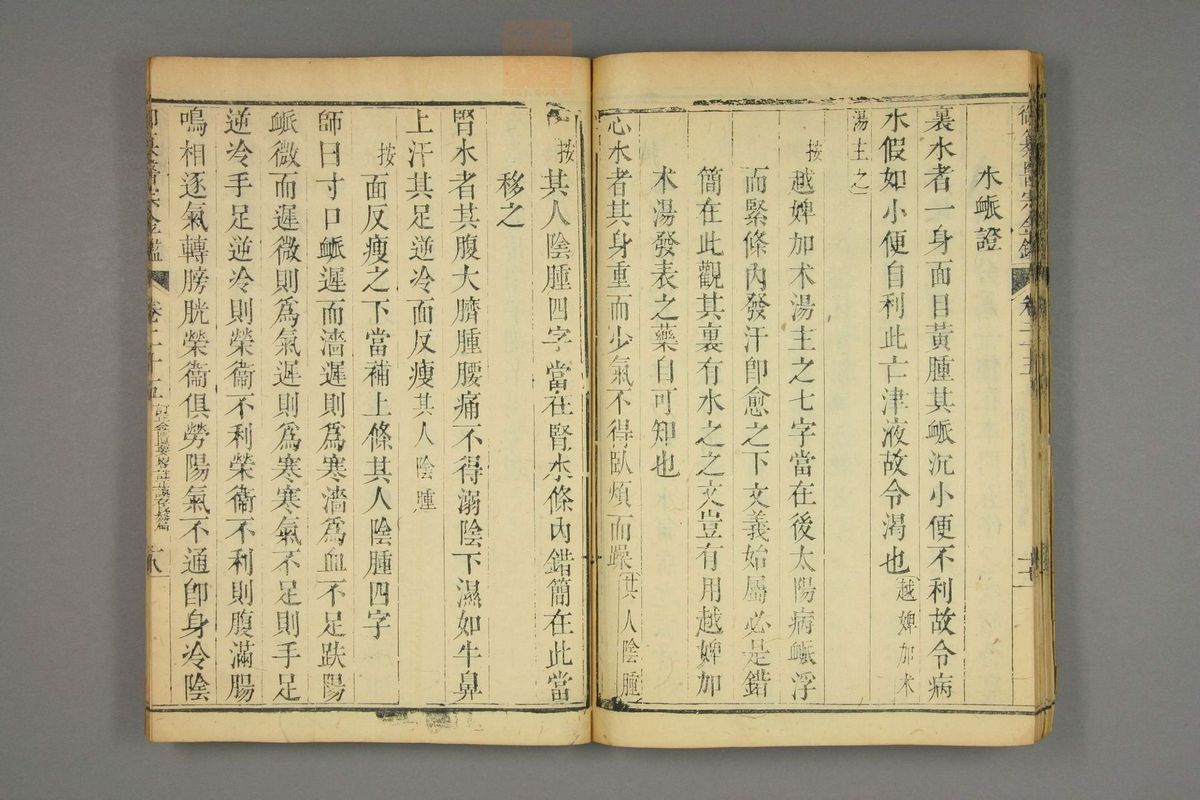 御纂醫宗金鑑
水衇證
裏水者一身面目黃腫其衇沉小便不利故令病
水假如小便自利此亡津液故令渴也越婢加术
湯主之
按越婢加术湯主之七字當在後太陽病衇浮
而緊條內發汗卽愈之下文義始屬必是錯
簡在此觀其裏有水之之文豈有用越婢加
术湯發表之藥自可知也
心水者其身重而少氣不得臥煩而躁其人陰腫
按其人陰腫四字當在腎水條內錯簡在此當
移之
腎水者其腹大臍腫腰痛不得溺陰下濕如牛鼻
上汗其足逆冷面反瘦其人陰腫
按面反瘦之下當補上條其人陰腫四字
師曰寸口衇遲而濇遲則爲寒濇爲血不足趺陽
衇微而遲微則爲氣遲則爲寒寒氣不足則手足
逆冷手足逆冷則榮衞不利榮衞不利則腹滿腸
鳴相逐氣轉膀胱榮衞俱勞陽氣不通卽身冷陰
卷二十五